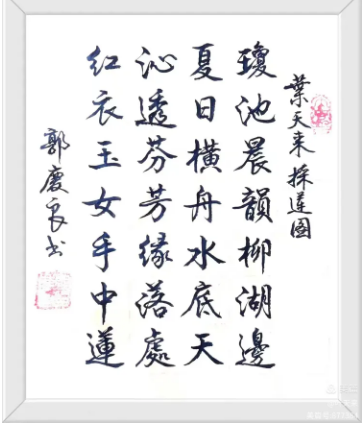 葉天来採蓮圖
瓊池晨韻柳湖邊
夏日橫舟水底天
沁透芬芳緣落處
紅衣玉女手中蓮
郭慶良书